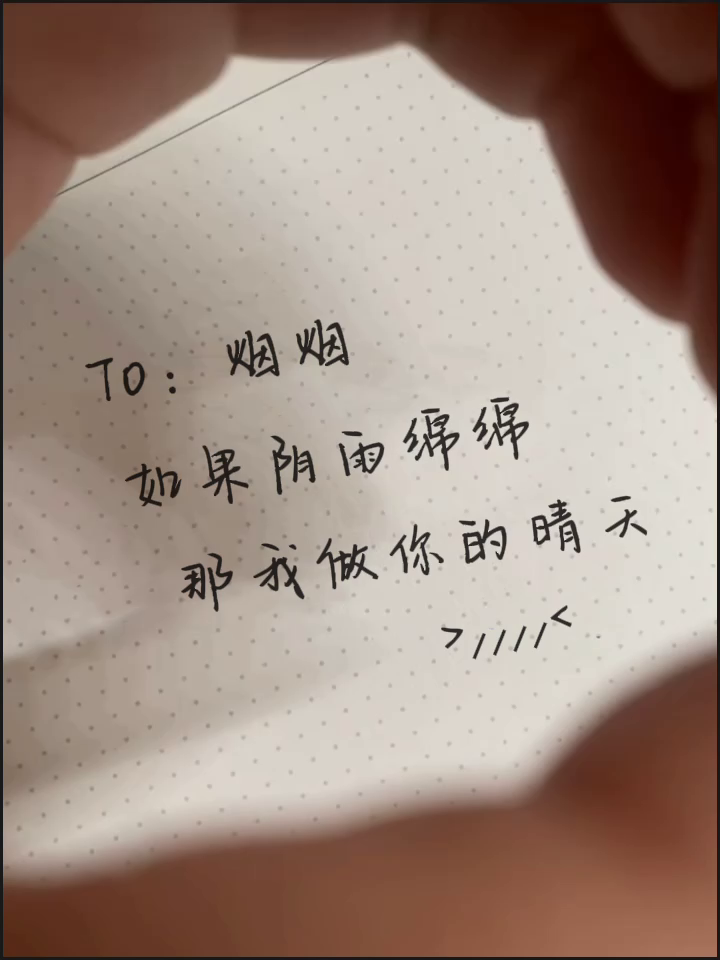 To: 烟烟
如果阴雨绵绵
那我做你的晴天
>////<